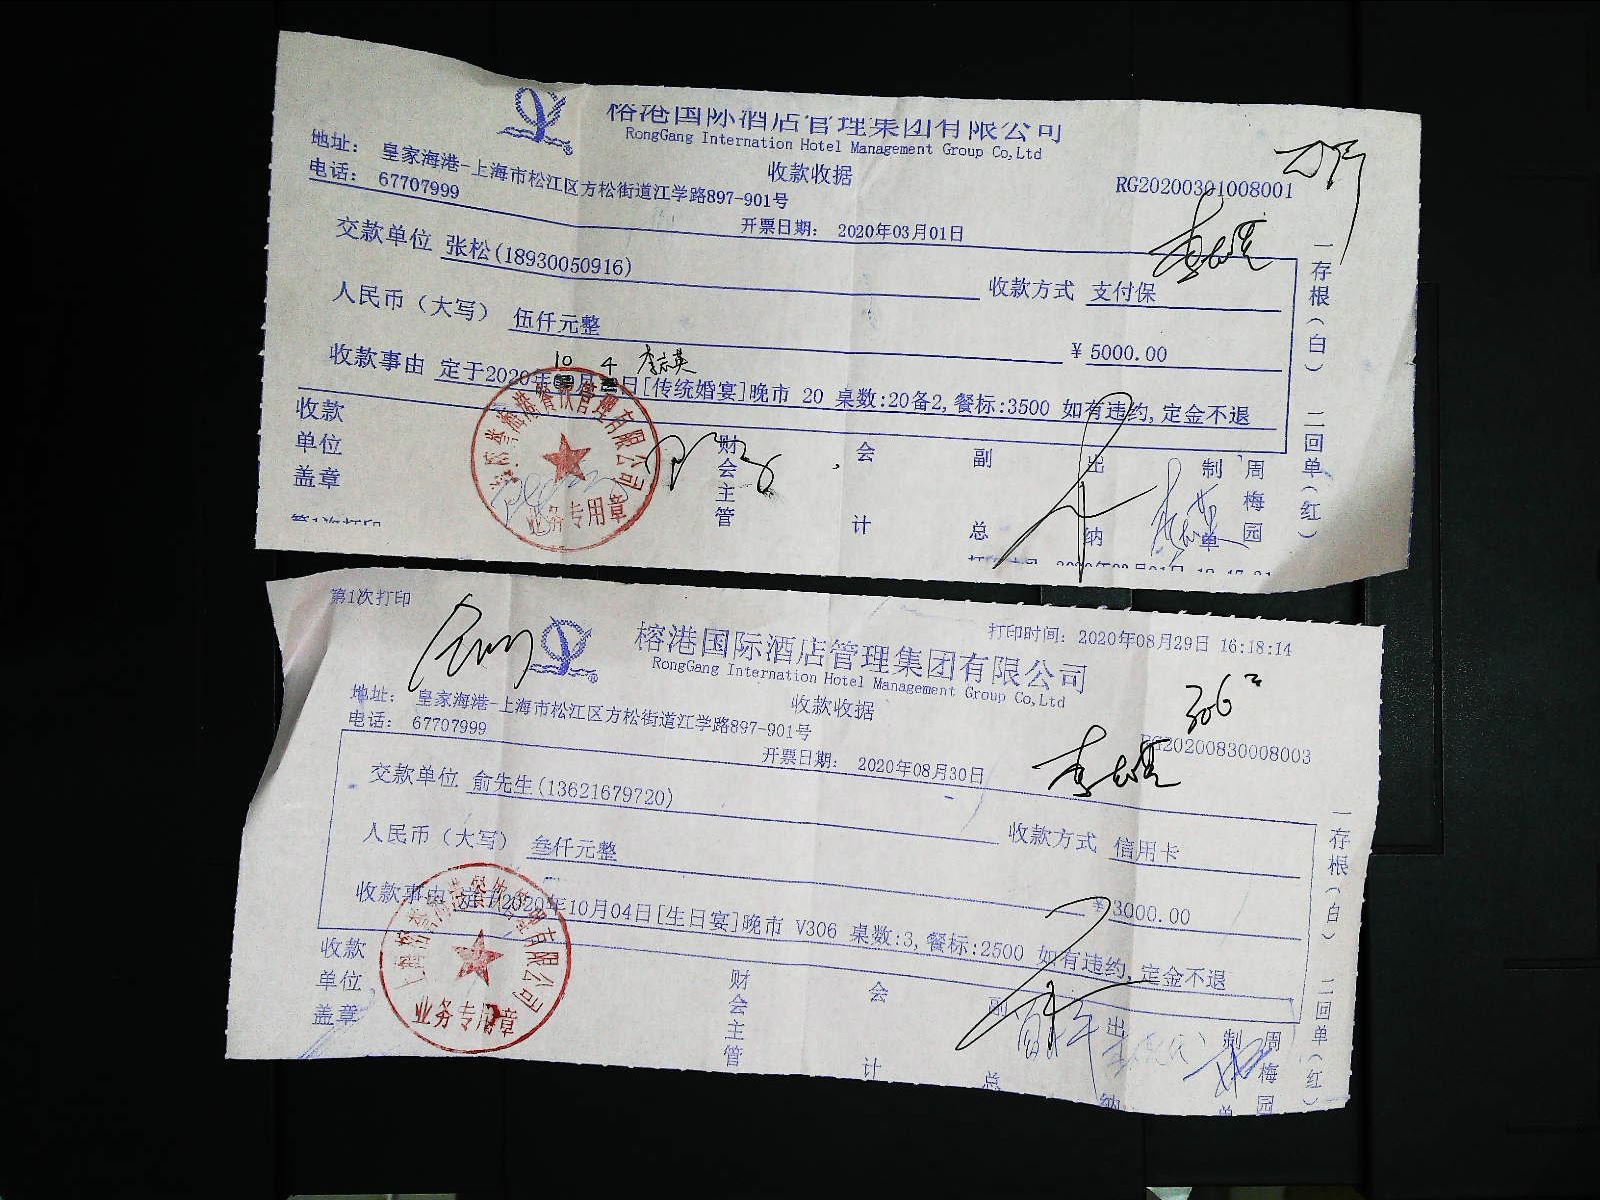 榕港国际酒店管理集团有限公司
RongGang Internation Hotel Management Group Co,Ltd
地址： 皇家海港-上海市松江区方松街道江学路897-901号
收款收据
RG20200301008001
电话： 67707999
开票日期： 2020年03月01日
交款单位 张松(18930050916)
收款方式 支付保
人民币（大写） 伍仟元整
¥ 5000.00
10 4 李志英
收款事由 定于2020年 月 日[传统婚宴]晚市 20 桌数:20备2,餐标:3500 如有违约,定金不退
收款单位盖章
财会主管
会计
副总
出纳
制单
周梅园
一存根（白） 二回单（红）
业务专用章
第1次打印
第1次打印
打印时间： 2020年08月29日 16:18:14
榕港国际酒店管理集团有限公司
RongGang Internation Hotel Management Group Co,Ltd
306
地址： 皇家海港-上海市松江区方松街道江学路897-901号
收款收据
RG20200830008003
电话： 67707999
开票日期： 2020年08月30日
交款单位 俞先生(13621679720)
收款方式 信用卡
人民币（大写） 叁仟元整
¥ 3000.00
收款事由 定于2020年10月04日[生日宴]晚市 V306 桌数:3,餐标:2500 如有违约,定金不退
收款单位盖章
财会主管
会计
副总
出纳
制单
周梅园
一存根（白） 二回单（红）
业务专用章